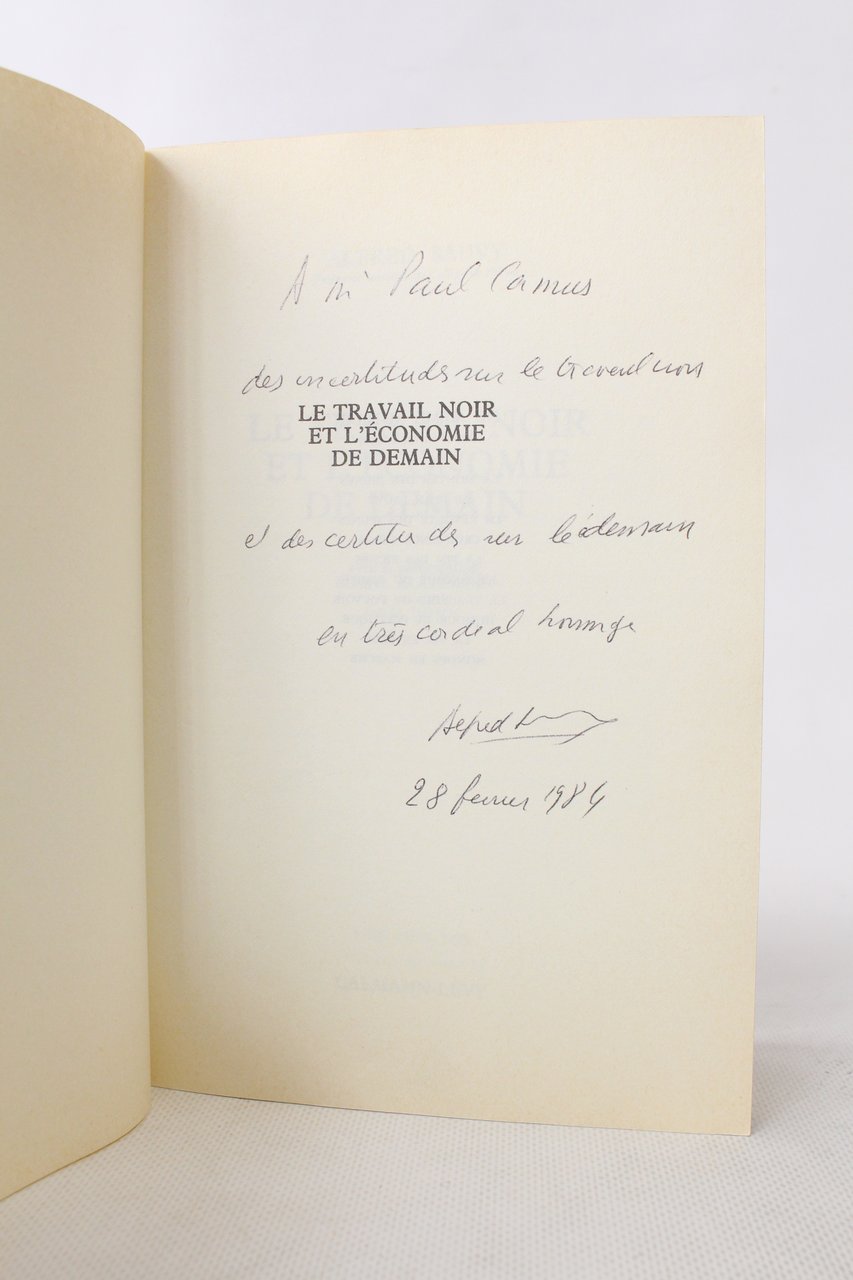 A Mr Paul Camus
des incertitudes sur le travail noir
LE TRAVAIL NOIR
ET L'ÉCONOMIE
DE DEMAIN
et des certitudes sur le demain
en très cordial hommage
Alfred Sauvy
28 février 1984